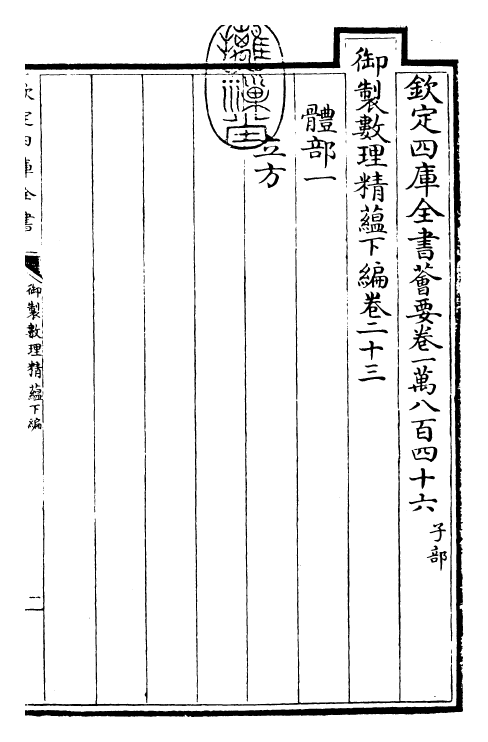 欽定四庫全書薈要卷一萬八百四十六 子部
御製數理精蘊下編卷二十三
體部一
立方
欽定四庫全書
御製數理精蘊下編